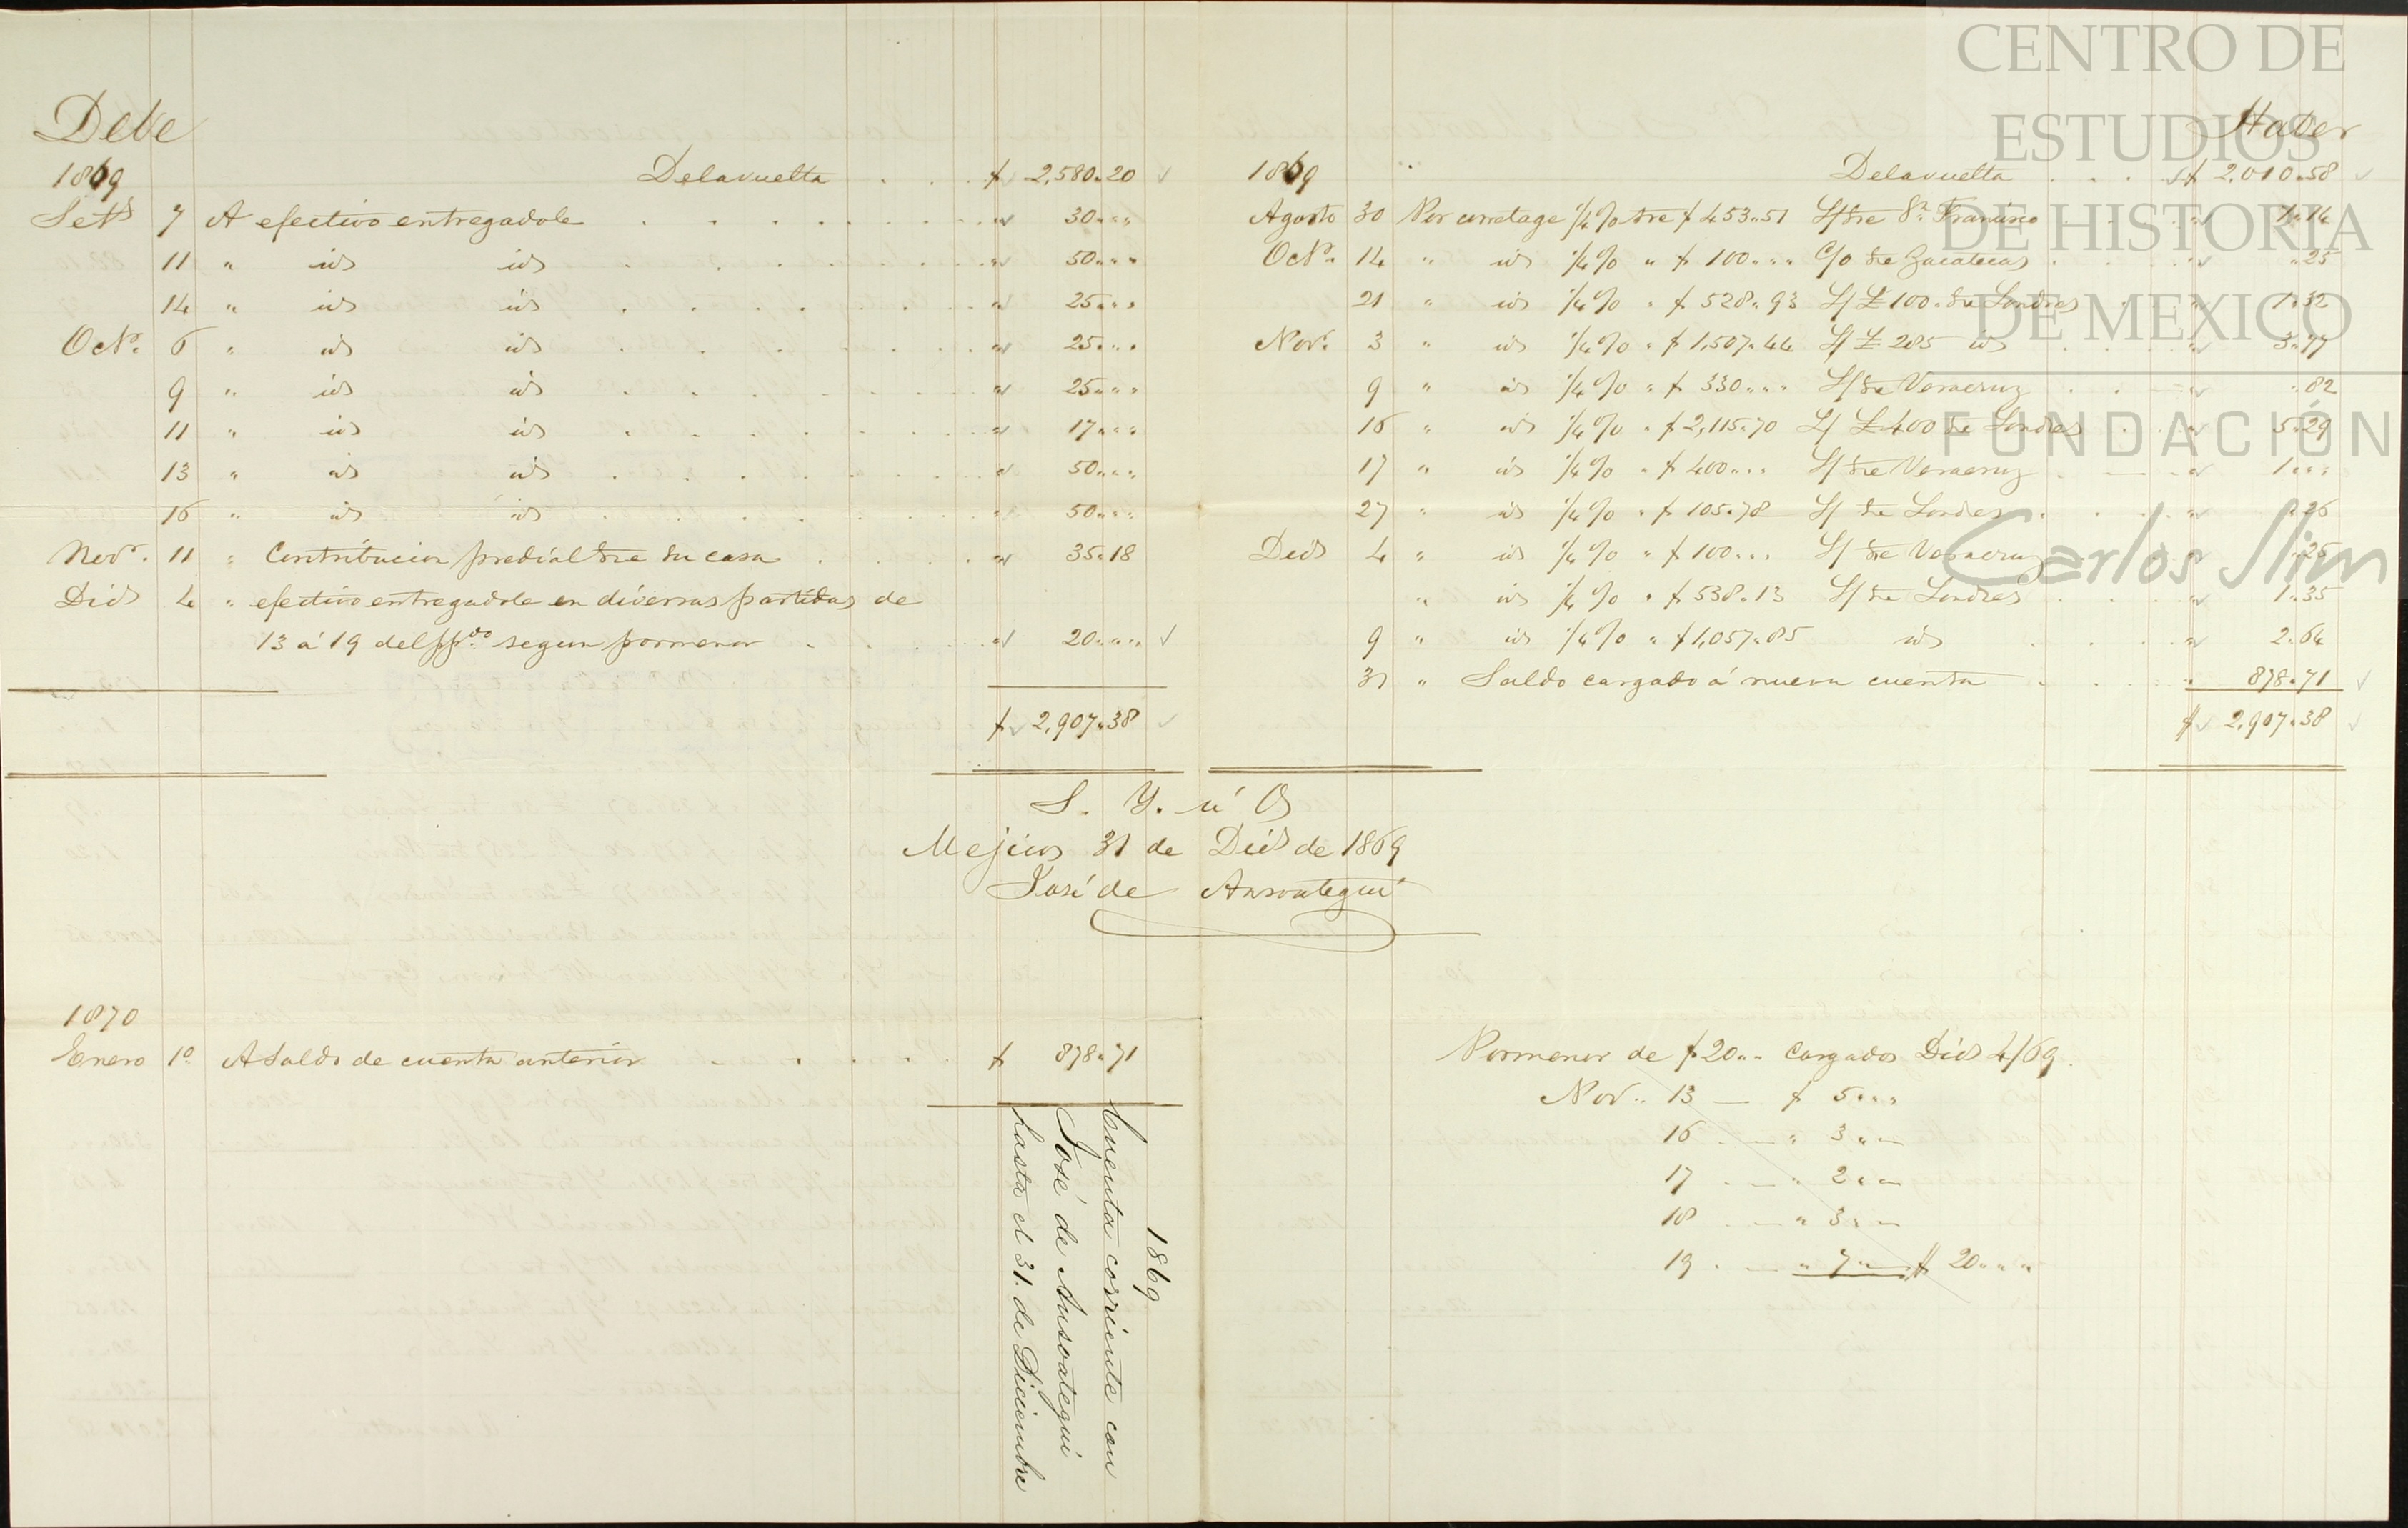 Debe
1869 Delavuelta . . . $ 2,580"20
Setb 7 A efectivo entregadole . . . . . . . . " 30"""
11 " id id . . . . . . . . " 50"""
14 " id id . . . . . . . . " 25"""
Octe. 6 " id id . . . . . . . . " 25"""
9 " id id . . . . . . . . " 25"""
11 " id id . . . . . . . . " 17"""
13 " id id . . . . . . . . " 50"""
16 " id id . . . . . . . . " 50"""
Novr. 11 " Contribucion predial sre su casa . . . . " 35"18
Dicb 4 " efectivo entregadole en diversas partidas de
13 á 19 del ppdo segun pormenor . . . . . " 20"""
$ 2,907"38
Haber
1869 Delavuelta . . . . $ 2,010"58
Agosto 30 Por corretage 1/4 % sre $ 453"51 L/ sre Sn. Francisco . . . " 1"14
Octe. 14 " id 1/4 % " $ 100""" C/o sre Zacatecas . . . " "25
21 " id 1/4 % " $ 528"93 L/ £ 100" sre Londres . . " 1"32
Nove. 3 " id 1/4 % " $ 1,507"44 L/ £ 285 id . . . " 3"77
9 " id 1/4 % " $ 330""" L/ sre Veracruz . . . " "82
16 " id 1/4 % " $ 2,115"70 L/ £ 400 sre Londres . . " 5"29
17 " id 1/4 % " $ 400""" L/ sre Veracruz . . . " 1"""
27 " id 1/4 % " $ 105"78 L/ sre Londres . . . " "26
Dicb 4 " id 1/4 % " $ 100""" L/ sre Veracruz . . . " "25
" id 1/4 % " $ 538"13 L/ sre Londres . . . " 1"35
9 " id 1/4 % " $ 1,057"85 id . . . . " 2"64
31 " Saldo cargado á nueva cuenta . . . . " 878"71
$ 2,907"38
S. Y. u' O
Mejico 31 de Dicb de 1869
José de Ansoategui
1870
Enero 1o. A Saldo de cuenta anterior . . . . . $ 878"71
Pormenor de $ 20"" cargados Dicb 4/69.
Nov. 13 — $ 5"""
16 . — " 3"—
17 . — " 2"—
18 . — " 3"—
19 . — " 7" $ 20"""
1869
Cuenta corriente con
José de Ansoategui
hasta el 31. de Diciembre
CENTRO DE
ESTUDIOS
DE HISTORIA
DE MEXICO
FUNDACIÓN
Carlos Slim